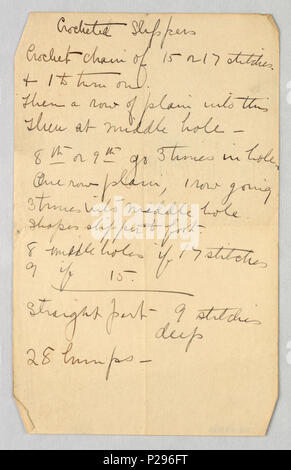 Crocheted Slippers
Crochet chain of 15 or 17 stitches.
& 1 to turn on.
Then a row of plain into this
Then at middle hole -
8th or 9th go 3 times in hole
One row plain, 1 row going
3 times into middle hole.
Shapes slipper to foot
8 middle holes if 17 stitches
9 if 15.
Straight part - 9 stitches
deep
28 bumps -
alamy
Image ID: P296FT
www.alamy.com